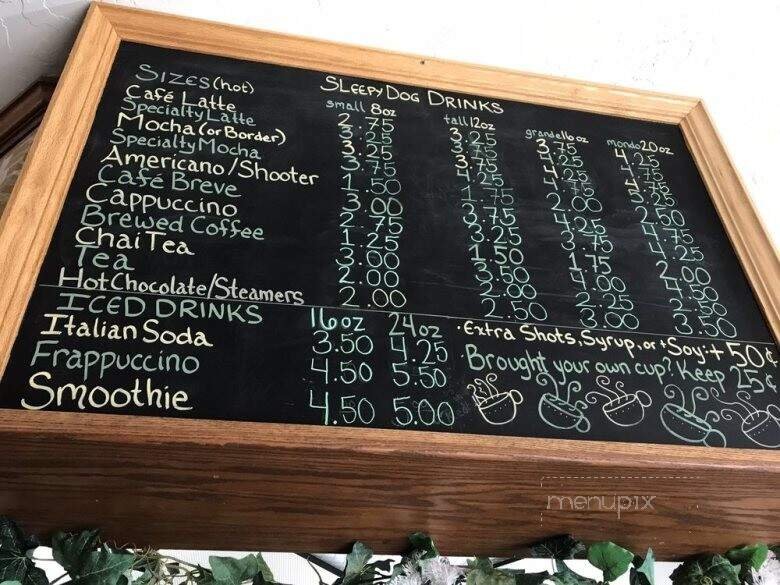 SLEEPY DOG DRINKS
SIZES (hot) small 8oz tall 12oz grande 16 oz mondo 20 oz
Café Latte 2.75 3.25 3.75 4.25
Specialty Latte 3.25 3.75 4.25 4.75
Mocha (or Border) 3.25 3.75 4.25 4.75
Specialty Mocha 3.75 4.25 4.75 5.25
Americano/Shooter 1.50 1.75 2.00 2.50
Café Breve 3.00 3.75 4.25 4.75
Cappuccino 2.75 3.25 3.75 4.25
Brewed Coffee 1.25 1.50 1.75 2.00
Chai Tea 3.00 3.50 4.00 4.50
Tea 2.00 2.00 2.25 2.50
Hot Chocolate/Steamers 2.00 2.50 3.00 3.50
ICED DRINKS 16oz 24oz
Italian Soda 3.50 4.25
Frappuccino 4.50 5.50
Smoothie 4.50 5.00
·Extra Shots, Syrup, or +Soy:+ 50¢
·Brought your own cup? Keep 25¢
menupix